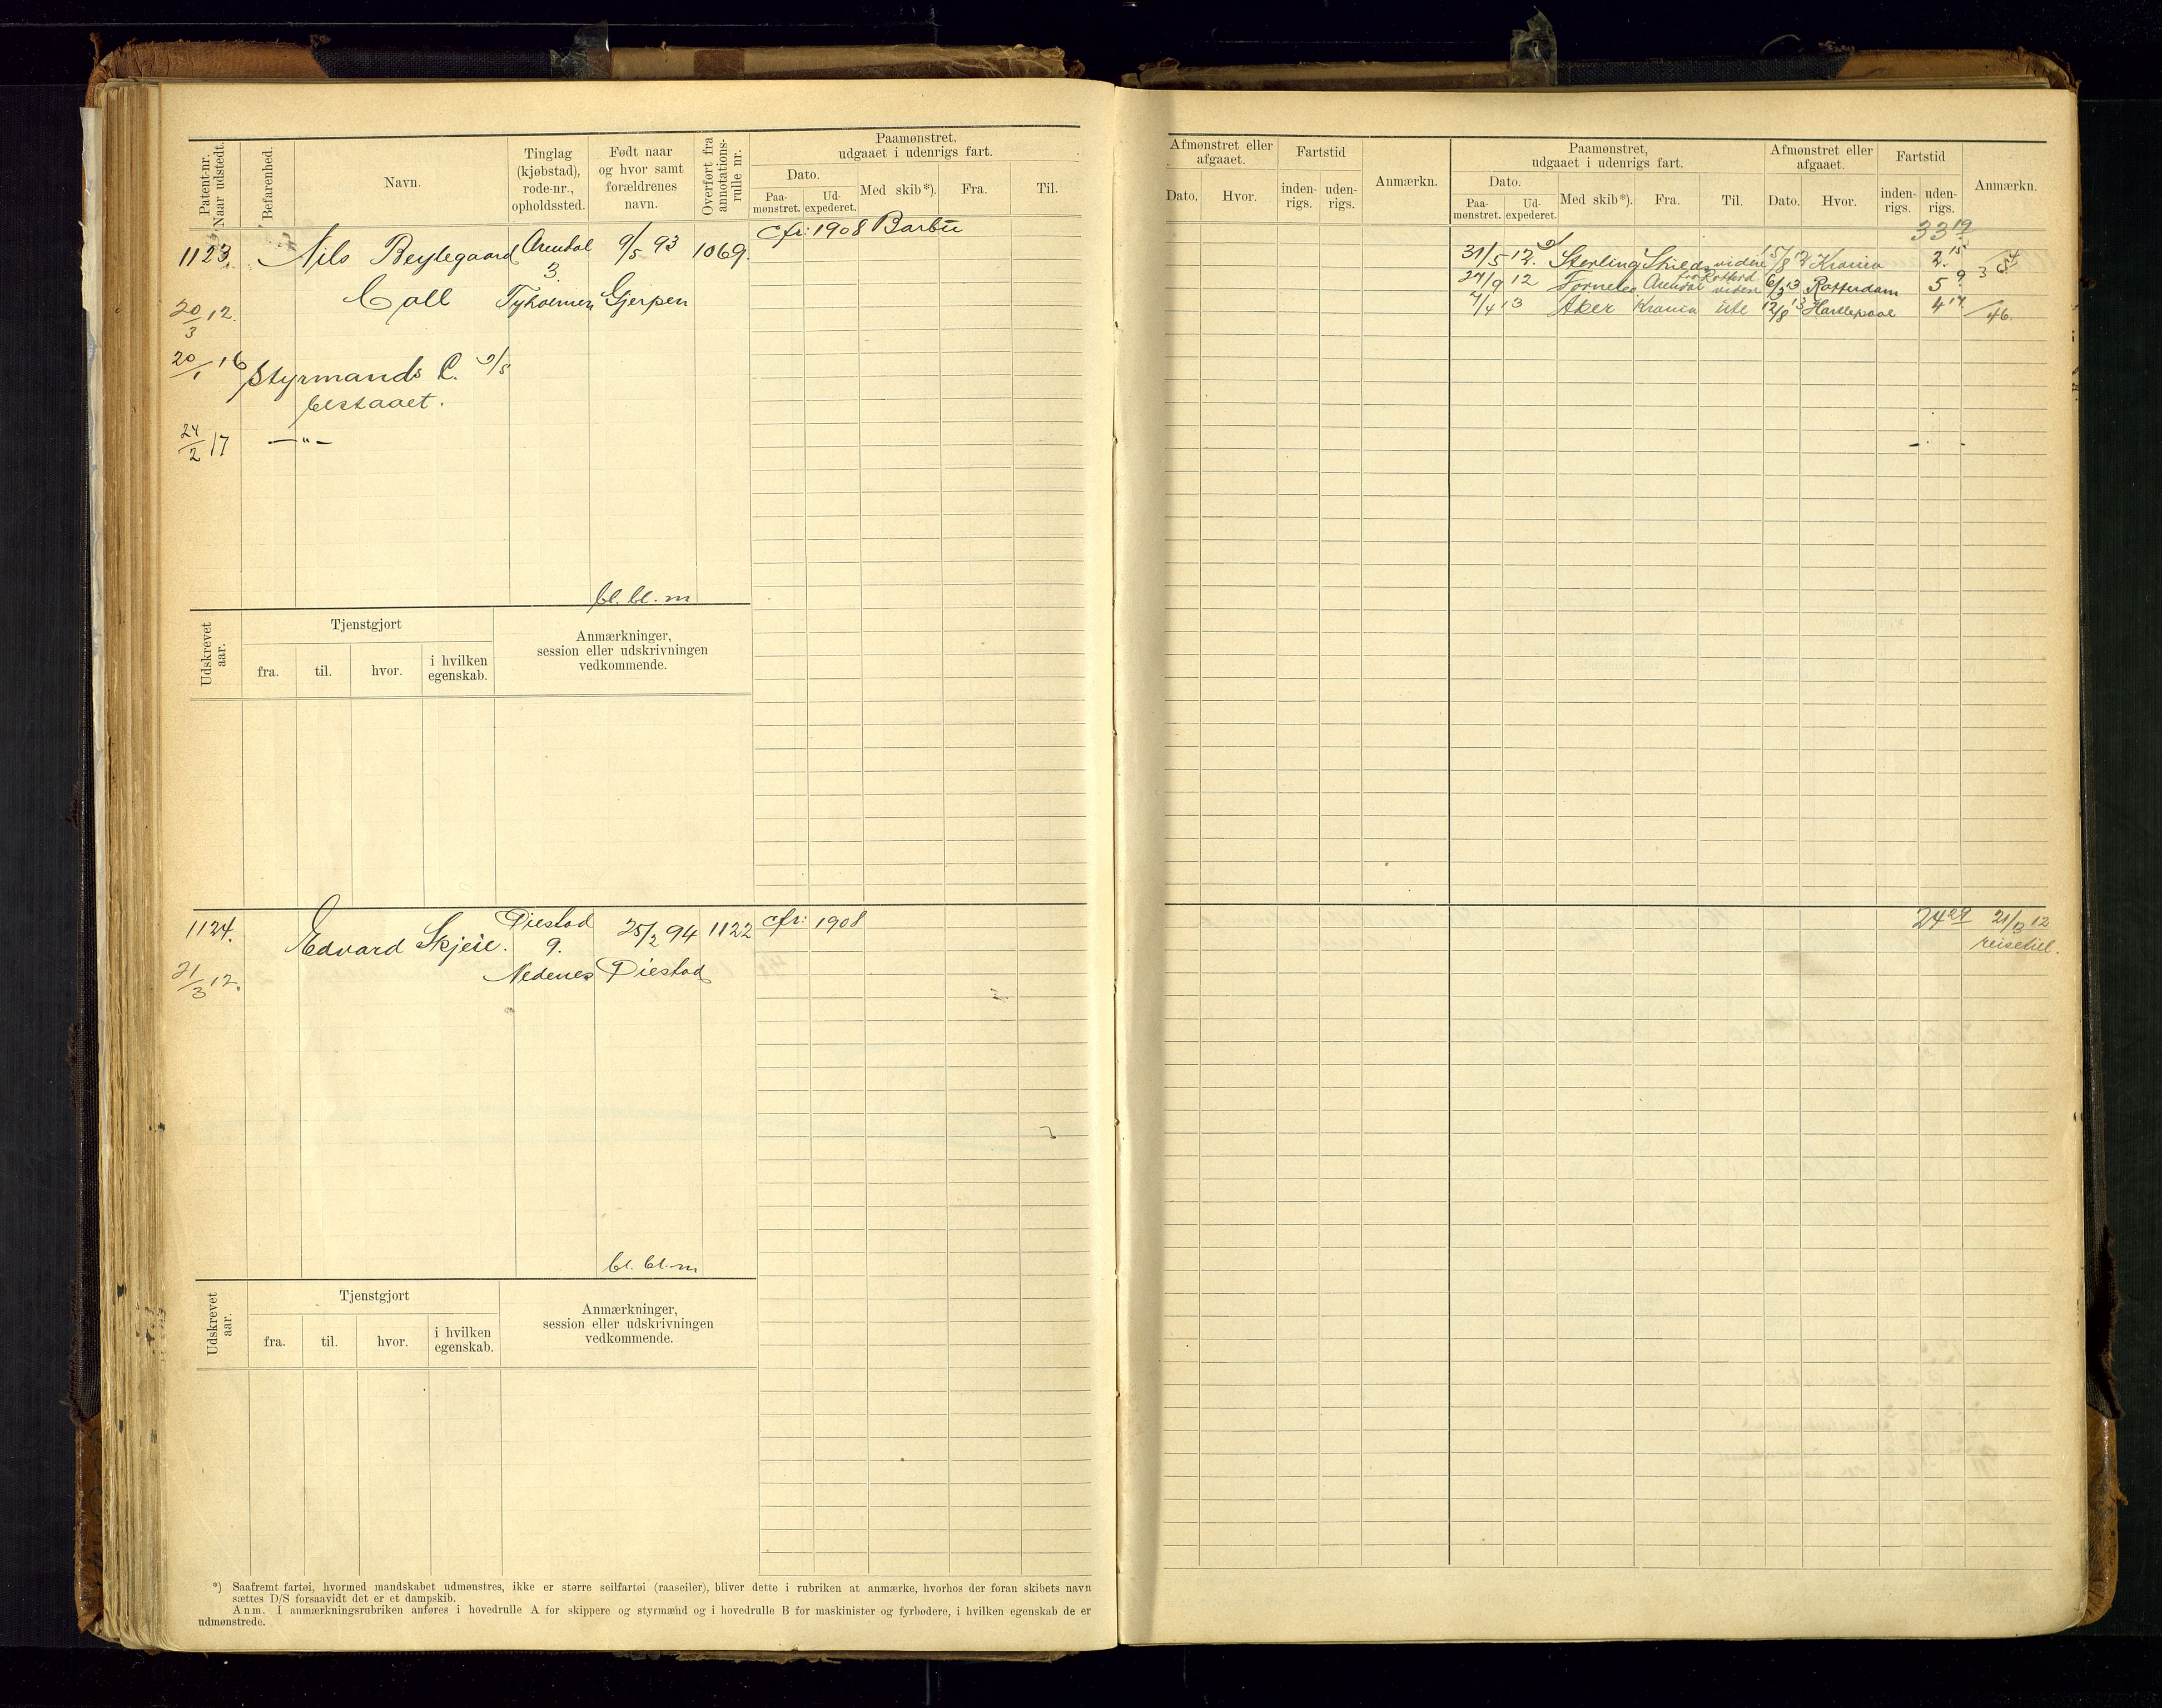 Patent-nr. Naar udstedt.
Befarenhed.
Navn.
Tinglag (kjøbstad), rode-nr., opholdssted.
Født naar og hvor samt forældrenes navn.
Overført fra annotations-rulle nr.
Paamønstret, udgaaet i udenrigs fart.
Dato.
Paa-mønstret.
Ud-expederet.
Med skib*).
Fra.
Til.
1123.
Nils
Coll
Arendal
3
Tyholmen
9/5 93
Gjerpen
1069.
cfr: 1908 Barbu
20/3 12.
20/1 16
Styrmands C. S/S
bestaaet.
24/2 17
— " —
bl. bl. m
Udskrevet aar.
Tjenstgjort
fra.
til.
hvor.
i hvilken egenskab.
Anmærkninger,
session eller udskrivningen
vedkommende.
1124.
Edvard Skjeie.
Øiestad
9.
Nedenes
25/2 94
Øiestad
1122
cfr: 1908
21/3 12.
bl. bl. m
Udskrevet aar.
Tjenstgjort
fra.
til.
hvor.
i hvilken egenskab.
Anmærkninger,
session eller udskrivningen
vedkommende.
*) Saafremt fartøi, hvormed mandskabet udmønstres, ikke er større seilfartøi (raaseiler), bliver dette i rubriken at anmærke, hvorhos der foran skibets navn
sættes D/S forsaavidt det er et dampskib.
Anm. I anmærkningsrubriken anføres i hovedrulle A for skippere og styrmænd og i hovedrulle B for maskinister og fyrbødere, i hvilken egenskab de er
udmønstrede.
Afmønstret eller afgaaet.
Fartstid
Dato.
Hvor.
inden-rigs.
uden-rigs.
Anmærkn.
Paamønstret,
udgaaet i udenrigs fart.
Dato.
Paa-mønstret.
Ud-expederet.
Med skib*).
Fra.
Til.
Afmønstret eller afgaaet.
Dato.
Hvor.
Fartstid
inden-rigs.
uden-rigs.
Anmærkn.
33 19
31/5 12. Sterling videre 15/8 12 Krania 2. 15
27/9 12 Arendal videre 6/3 13 Rotterdam 5 9
7/4 13 Aker Krania Ute 12/8 13 Hartlepool 4 17 46.
24 29
21/3 12
reisetil.